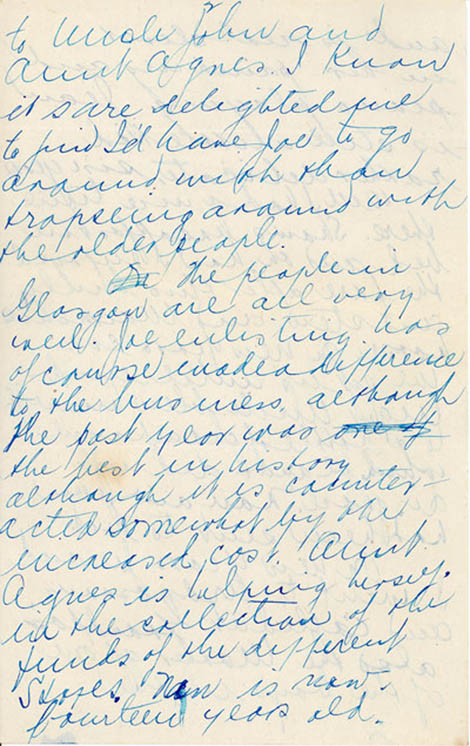 to Uncle John and
Aunt Agnes. I know
it sare delighted me
to find I'd have Joe to go
around with than
trapseing around with
the older people.
The people in
Glasgow are all very
well. Joe enlisting has
of course made a difference
to the business, although
the past year was one of
the best in history
although it is counter-
acted somewhat by the
increased cost. Aunt
Agnes is helping herself
in the collection of the
funds of the different
Stores. is now
fourteen years old.